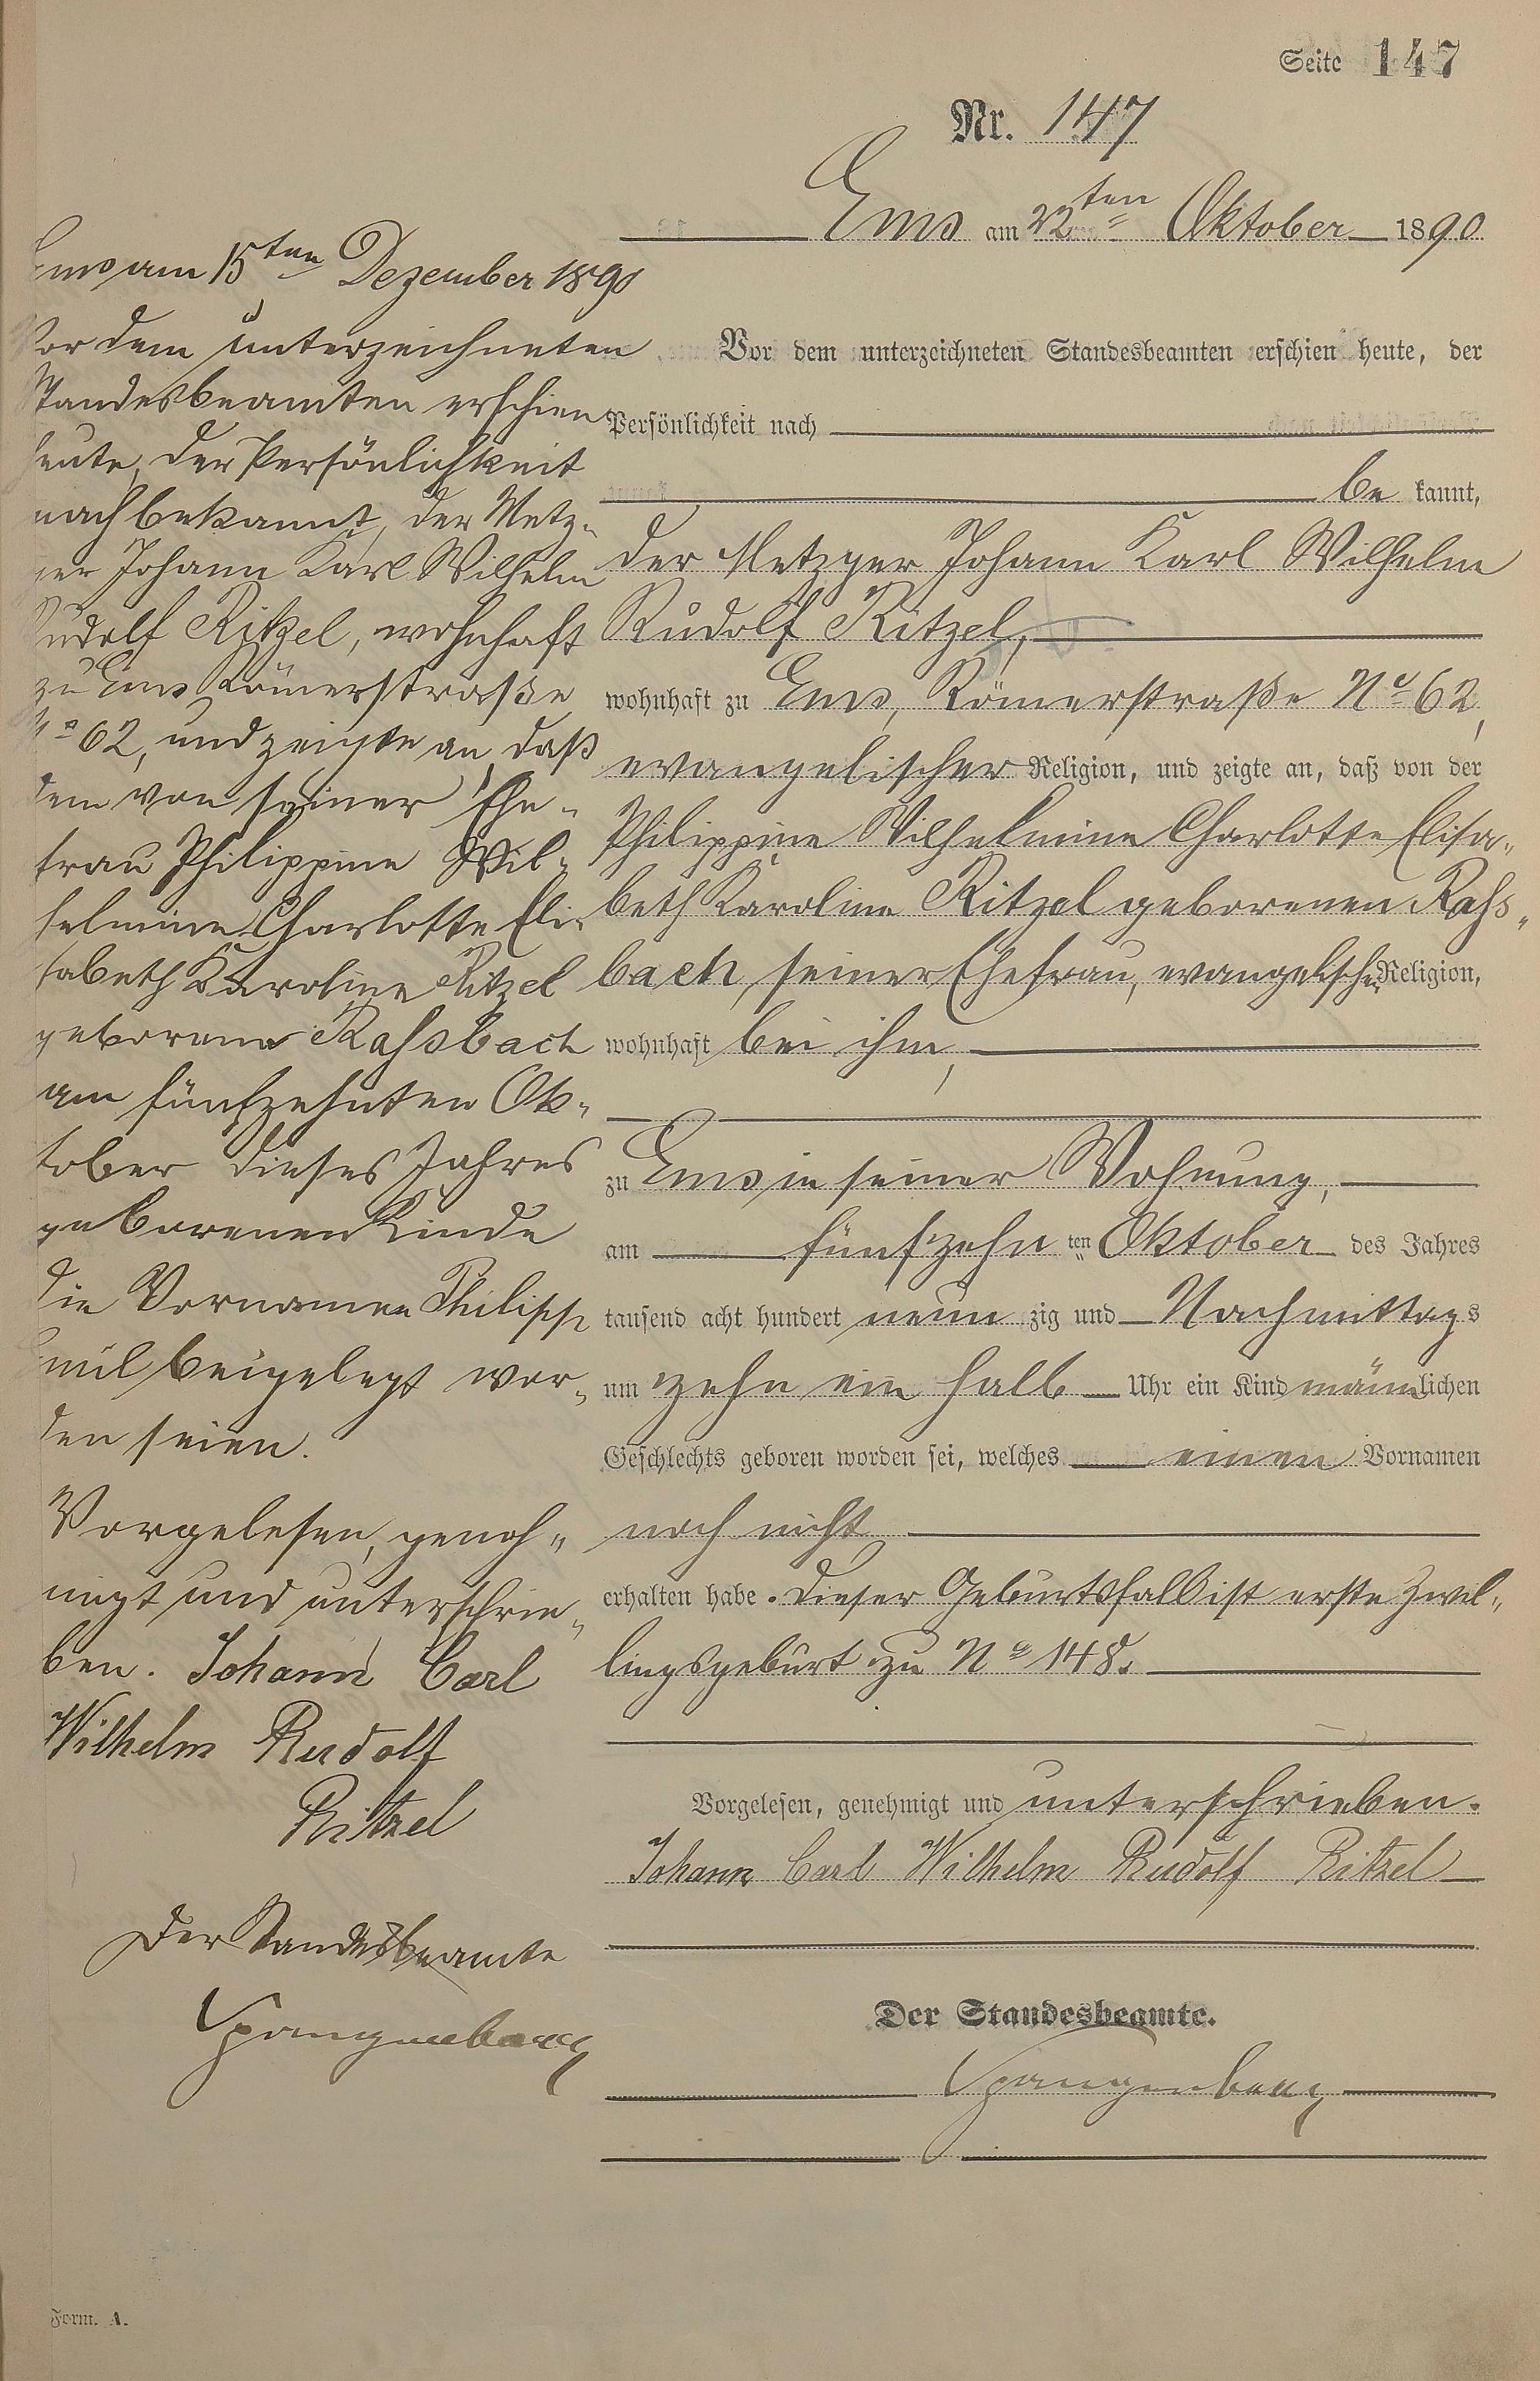 Seite 147
Nr. 147
Ems am 22ten Oktober 1890
Vor dem unterzeichneten Standesbeamten erschien heute, der
Persönlichkeit nach
be kannt,
der Metzger Johann Karl Wilhelm
Rudolf Ritzel,
wohnhaft zu Ems, Römerstraße No 62,
evangelischer Religion, und zeigte an, daß von der
Philippine Wilhelmine Charlotte Elisa-
beth Karoline Ritzel geborenen Rahs-
bach, seiner Ehefrau, evangelischer Religion,
wohnhaft bei ihm,
zu Ems in seiner Wohnung,
am fünfzehn ten Oktober des Jahres
tausend acht hundert neun zig und Nachmittags
um zehn ein halb Uhr ein Kind männlichen
Geschlechts geboren worden sei, welches einen Vornamen
noch nicht
erhalten habe. Dieser Geburtsfall ist erste Zwil-
lingsgeburt zu No 148.
Vorgelesen, genehmigt und unterschrieben.
Johann Carl Wilhelm Rudolf Ritzel
Der Standesbeamte.
Spangenberg
Ems am 15ten Dezember 1890
Vor dem unterzeichneten
Standesbeamten erschien
heute, der Persönlichkeit
nach bekannt, der Metz-
ger Johann Karl Wilhelm
Rudolf Ritzel, wohnhaft
zu Ems Römerstraße
No 62, und zeigte an, daß
dem von seiner Ehe-
frau Philippine Wil-
helmine Charlotte Eli-
sabeth Karoline Ritzel
geborene Rahsbach
am fünfzehnten Ok-
tober dieses Jahres
geborenen Kinde
die Vornamen Philipp
Emil beigelegt wor-
den seien.
Vorgelesen, geneh-
migt und unterschrie-
ben. Johann Carl
Wilhelm Rudolf
Ritzel
Der Standesbeamte
Spangenberg
Form. A.